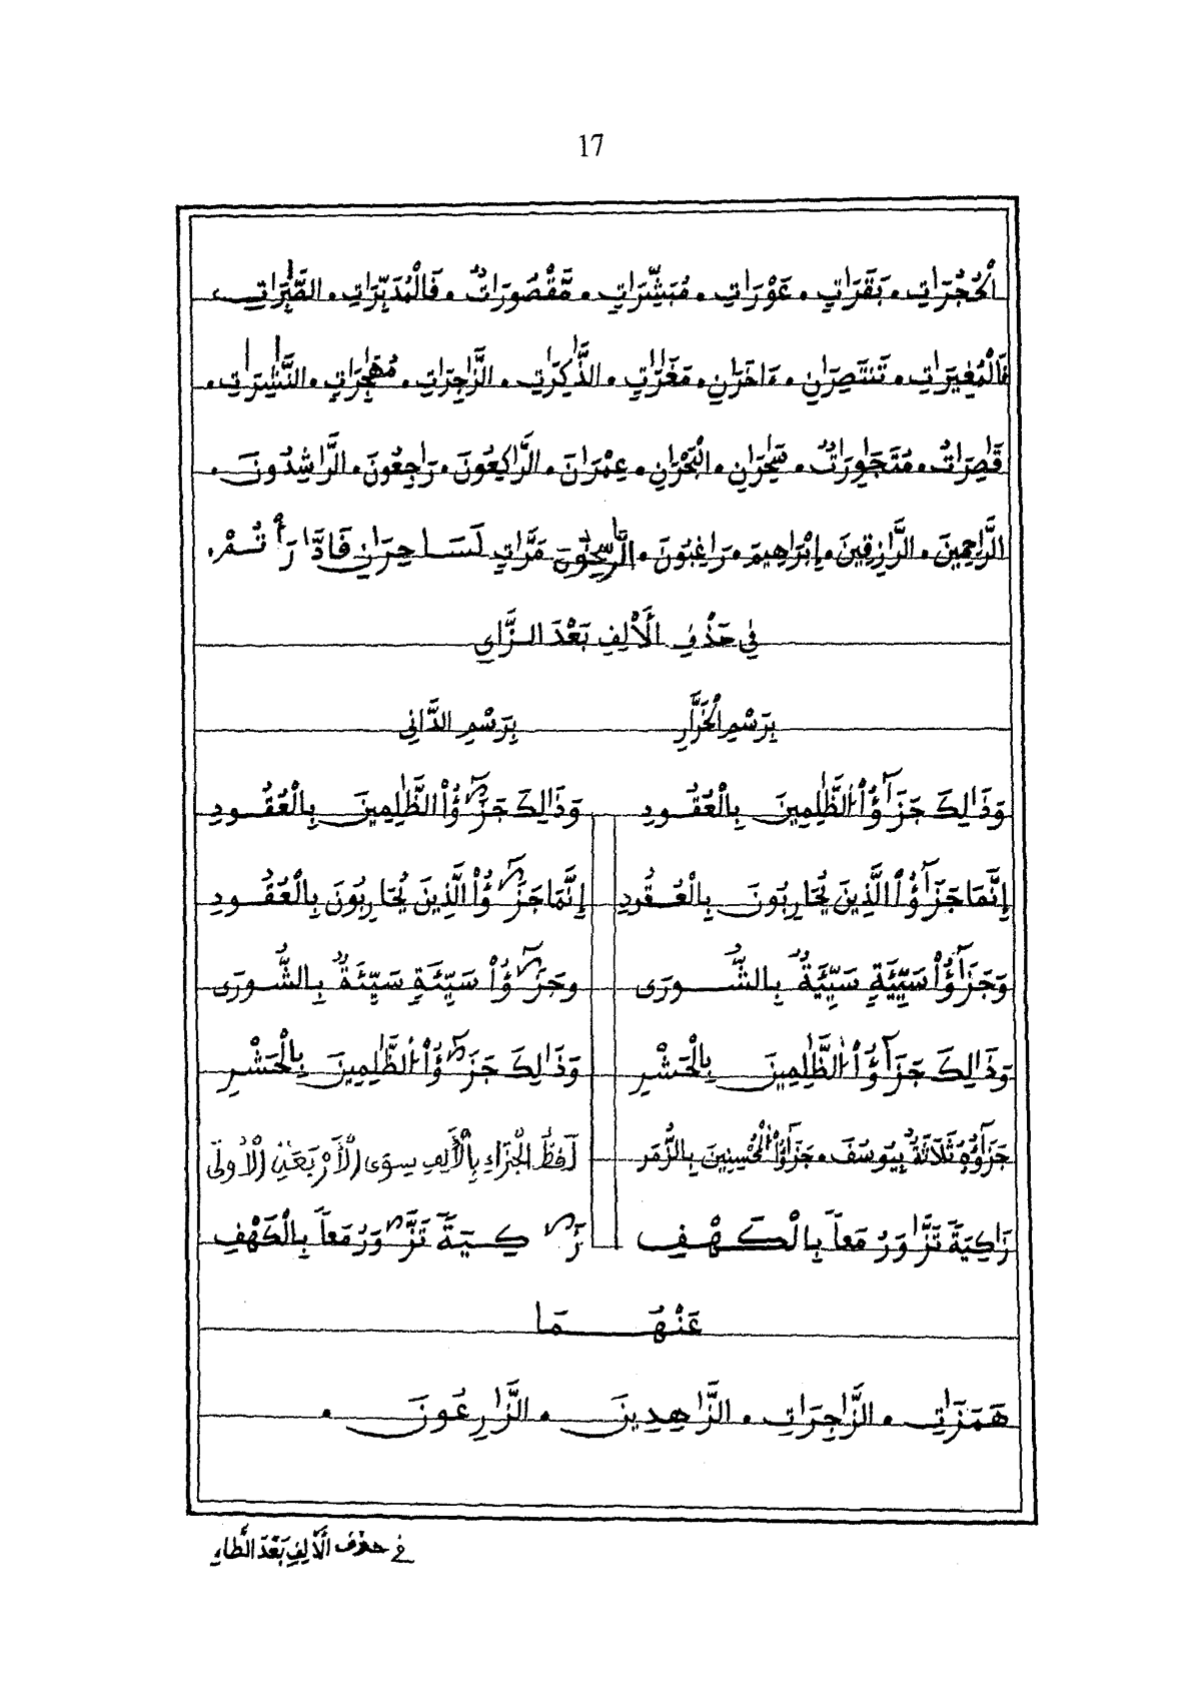 17
اَلْحُجُرَاتِ . بَقَرَاتٍ . عَوْرَاتٍ . مُبَشِّرَاتٍ . مَّقْصُورَاتٌ . فَالْمُدَبِّرَاتِ . الصَّٰبِرَاتِ .
فَالْمُغِيرَاتِ . تَنتَصِرَانِ . ءَاخَرَانِ . مَغَٰرَاتٍ . الذَّٰكِرَاتِ . الزَّٰجِرَاتِ . مُهَٰجِرَاتٍ . النَّٰشِرَاتِ .
قَٰصِرَاتُ . مُتَجَٰوِرَاتٌ . سَٰحِرَانِ . الْبَحْرَانِ . عِمْرَانَ . الرَّاكِعُونَ . رَاجِعُونَ . الرَّاشِدُونَ .
الرَّاحِمِينَ . الرَّازِقِينَ . إِبْرَاهِيمَ . رَاغِبُونَ . الرَّاسِخُونَ مَرَّاتٍ لَسَاحِرَانِ فَادَّارَأْتُمْ .
فِي حَذْفِ الْأَلِفِ بَعْدَ الزَّايِ
بِرَسْمِ الْخَرَّازِ بِرَسْمِ الدَّانِي
وَذَالِكَ جَزَآؤُاْ الظَّٰلِمِينَ بِالْعُقُودِ وَذَالِكَ جَزَٰٓؤُاْ الظَّٰلِمِينَ بِالْعُقُودِ
إِنَّمَا جَزَآؤُاْ الَّذِينَ يُحَارِبُونَ بِالْعُقُودِ إِنَّمَا جَزَٰٓؤُاْ الَّذِينَ يُحَارِبُونَ بِالْعُقُودِ
وَجَزَآؤُاْ سَيِّئَةٍ سَيِّئَةٌ بِالشُّورَى وَجَزَٰٓؤُاْ سَيِّئَةٍ سَيِّئَةٌ بِالشُّورَى
وَذَالِكَ جَزَآؤُاْ الظَّٰلِمِينَ بِالْحَشْرِ وَذَالِكَ جَزَٰٓؤُاْ الظَّٰلِمِينَ بِالْحَشْرِ
جَزَآؤُهُ ثَلَاثَةٌ بِيُوسُفَ . جَزَآؤُاْ الْمُحْسِنِينَ بِالزُّمَرِ لَفْظُ الْجَزَاءِ بِالْأَلِفِ سِوَى الْأَرْبَعَةِ الْأُولَى
زَاكِيَةً تَّزَّاوَرُ مَعاً بِالْكَهْفِ زَٰكِيَةً تَّزَّٰوَرُ مَعاً بِالْكَهْفِ
عَنْهُمَا
هَمَزَاتِ . الزَّاجِرَاتِ . الزَّاهِدِينَ . الزَّارِعُونَ .
في حذف الْأَلِفِ بَعْدَ الطَّاءِ